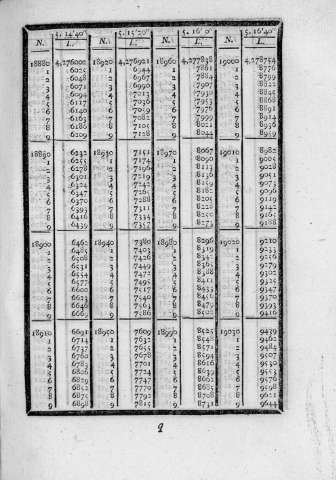 5. 14'40" 5. 15'20" 5. 16' 0" 5. 16'40"
N. L. N. L. N. L. N. L.
18880 4,276002 18920 4,276921 18960 4,277838 19000 4,278754
1 6025 1 6944 1 7861 1 8776
2 6048 2 6967 2 7884 2 8799
3 6071 3 6990 3 7907 3 8822
4 6094 4 7013 4 7930 4 8845
5 6117 5 7036 5 7953 5 8868
6 6140 6 7059 6 7976 6 8891
7 6163 7 7082 7 7999 7 8914
8 6186 8 7105 8 8021 8 8936
9 6209 9 7128 9 8044 9 8959
18890 6232 18930 7151 18970 8067 19010 8982
1 6255 1 7174 1 8090 1 9005
2 6278 2 7196 2 8113 2 9028
3 6301 3 7219 3 8136 3 9051
4 6324 4 7242 4 8159 4 9073
5 6347 5 7265 5 8182 5 9096
6 6370 6 7288 6 8205 6 9119
7 6393 7 7311 7 8228 7 9142
8 6416 8 7334 8 8250 8 9165
9 6439 9 7357 9 8273 9 9188
18900 6462 18940 7380 18980 8296 19020 9210
1 6485 1 7403 1 8319 1 9233
2 6508 2 7426 2 8342 2 9256
3 6531 3 7449 3 8365 3 9279
4 6554 4 7472 4 8388 4 9302
5 6577 5 7495 5 8411 5 9325
6 6600 6 7517 6 8433 6 9347
7 6623 7 7540 7 8456 7 9370
8 6646 8 7563 8 8479 8 9393
9 6669 9 7586 9 8502 9 9416
18910 6691 18950 7609 18990 8525 19030 9439
1 6714 1 7632 1 8548 1 9462
2 6737 2 7655 2 8571 2 9484
3 6760 3 7678 3 8594 3 9507
4 6783 4 7701 4 8616 4 9530
5 6806 5 7724 5 8639 5 9553
6 6829 6 7747 6 8662 6 9576
7 6852 7 7770 7 8685 7 9598
8 6875 8 7792 8 8708 8 9621
9 6898 9 7815 9 8731 9 9644